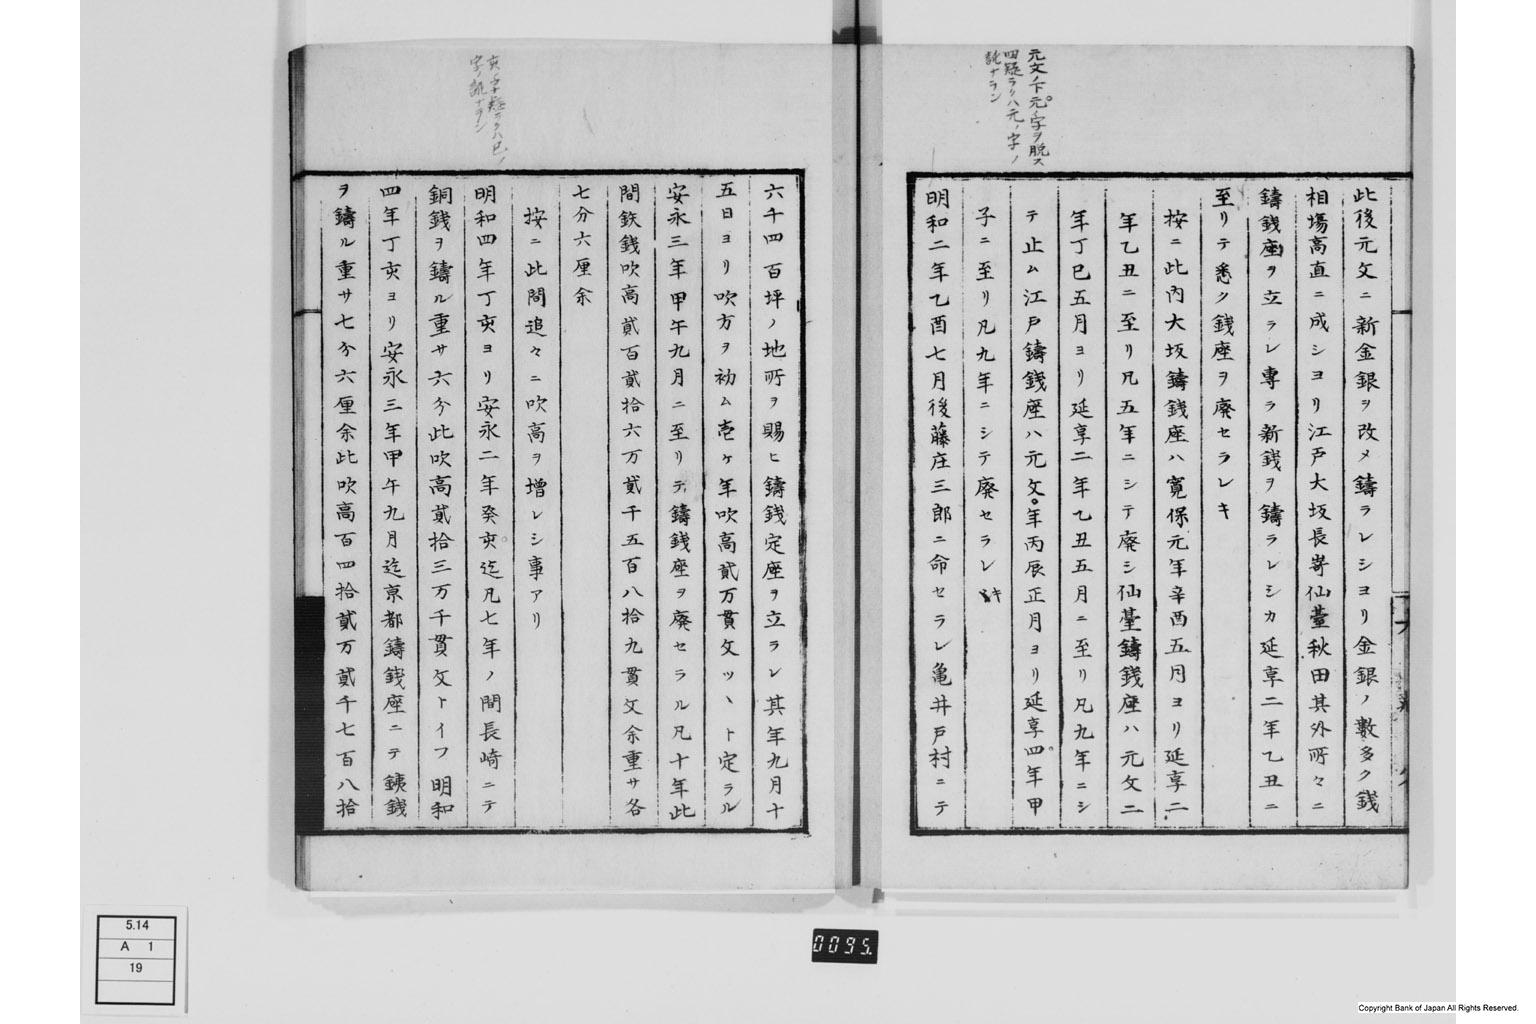 元文ノ下元ノ字ヲ脱ス
四疑ラクハ元ノ字ノ
訛ナラン
此後元文ニ新金銀ヲ改メ鑄ラレシヨリ金銀ノ數多ク錢
相場高直ニ成シヨリ江戸大坂長嵜仙臺秋田其外所々ニ
鑄錢座ヲ立ラレ専ラ新錢ヲ鑄ラレシカ延享二年乙丑ニ
至リテ悉ク錢座ヲ廢セラレキ
按ニ此内大坂鑄錢座ハ寛保元年辛酉五月ヨリ延享二
年乙丑ニ至リ凡五年ニシテ廢シ仙臺鑄錢座ハ元文二
年丁巳五月ヨリ延享二年乙丑五月ニ至リ凡九年ニシ
テ止ム江戸鑄錢座ハ元文年丙辰正月ヨリ延享四年甲
子ニ至リ凡九年ニシテ廢セラレキ
明和二年乙酉七月後藤庄三郎ニ命セラレ亀井戸村ニテ
亥ノ字疑ラクハ巳ノ
字ノ訛ナラン
六千四百坪ノ地所ヲ賜ヒ鑄錢定座ヲ立ラレ其年九月十
五日ヨリ吹方ヲ初ム壱ヶ年吹高貳万貫文ツヽト定ラル
安永三年甲午九月ニ至リテ鑄錢座ヲ廢セラル凡十年此
間鉄錢吹高貳百貳拾六万貳千五百八拾九貫文余重サ各
七分六厘余
按ニ此間追々ニ吹高ヲ増レシ事アリ
明和四年丁亥ヨリ安永二年癸亥迄凡七年ノ間長崎ニテ
銅錢ヲ鑄ル重サ六分此吹高貳拾三万千貫文トイフ明和
四年丁亥ヨリ安永三年甲午九月迄京都鑄錢座ニテ銕錢
ヲ鑄ル重サ七分六厘余此吹高百四拾貳万貳千七百八拾
5.14
A 1
19
0095.
Copyright Bank of Japan All Rights Reserved.